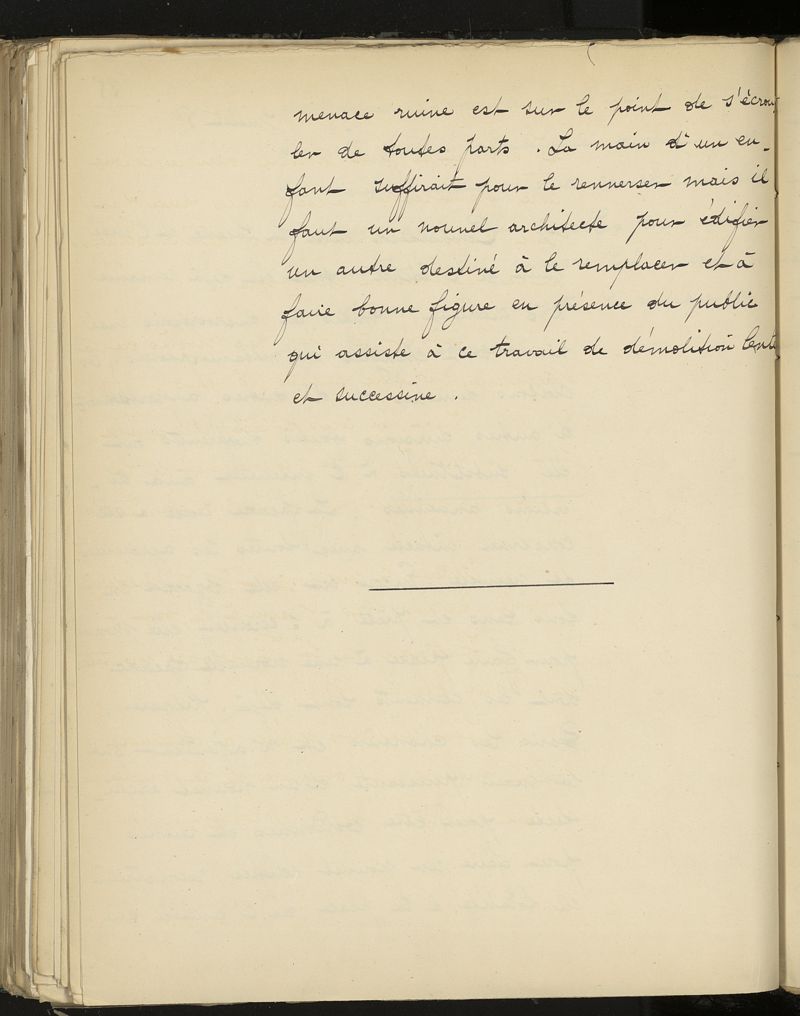 menace ruine est sur le point de s'écrou
ler de toutes parts. La main d'un en-
fant suffirait pour le renverser mais il
faut un nouvel architecte pour édifier
un autre destiné à le remplacer et à
faire bonne figure en présence du public
qui assiste à ce travail de démolition lente
et successive.